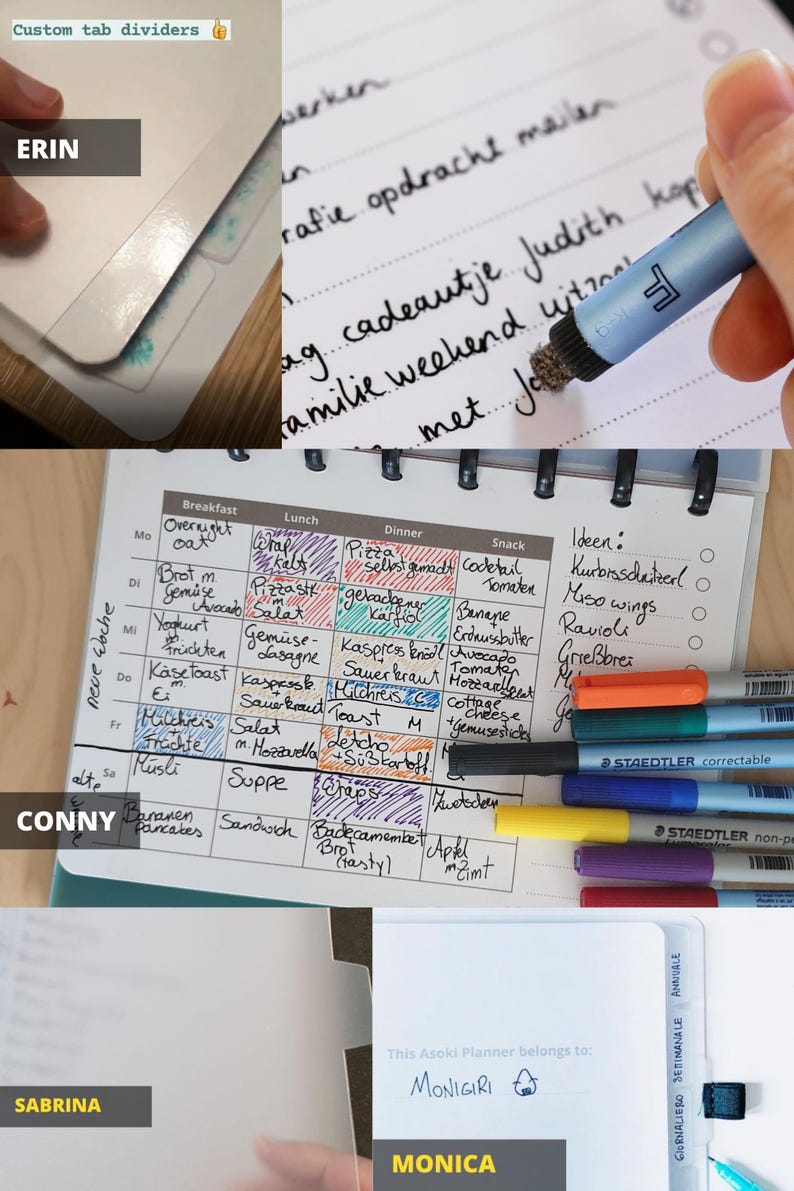 Custom tab dividers 👍
ERIN
werken
rafie opdracht mailen
ag cadeautje Judith kop
familie weekend uitzoe
met Jo
Breakfast Lunch Dinner Snack
Mo Overnight oat Wrap kalt Pizza selbstgemacht Cocktail Tomaten
Di Brot m. Gemüse Avocado Pizzastk m Salat gebackener Karfiol Banane Erdnussbutter
Mi Yoghurt Früchten Gemüse-lasagne Kaspressknödl + Sauerkraut Avocado Tomaten Mozzarella Salat
Do Käsetoast m. Ei Kaspressk. + Sauerkraut Milchreis C Toast M Cottage cheese + Gemüsesticks
Fr Milchreis + Früchte Salat m. Mozzarella Letcho + Süßkartoff.
Sa Müsli Suppe Wraps Zwetschken
Bananen pancakes Sandwich Badecamembert Brot (tasty) Apfel m Zimt
neue Woche
alte
Ideen:
Kürbisschnitzerl
Miso wings
Ravioli
Grießbrei
STAEDTLER correctable
STAEDTLER non-pe
Lumocolor
CONNY
SABRINA
This Asoki Planner belongs to:
MONIGIRI
ANNUALE
SETTIMANALE
GIORNALIERO
MONICA